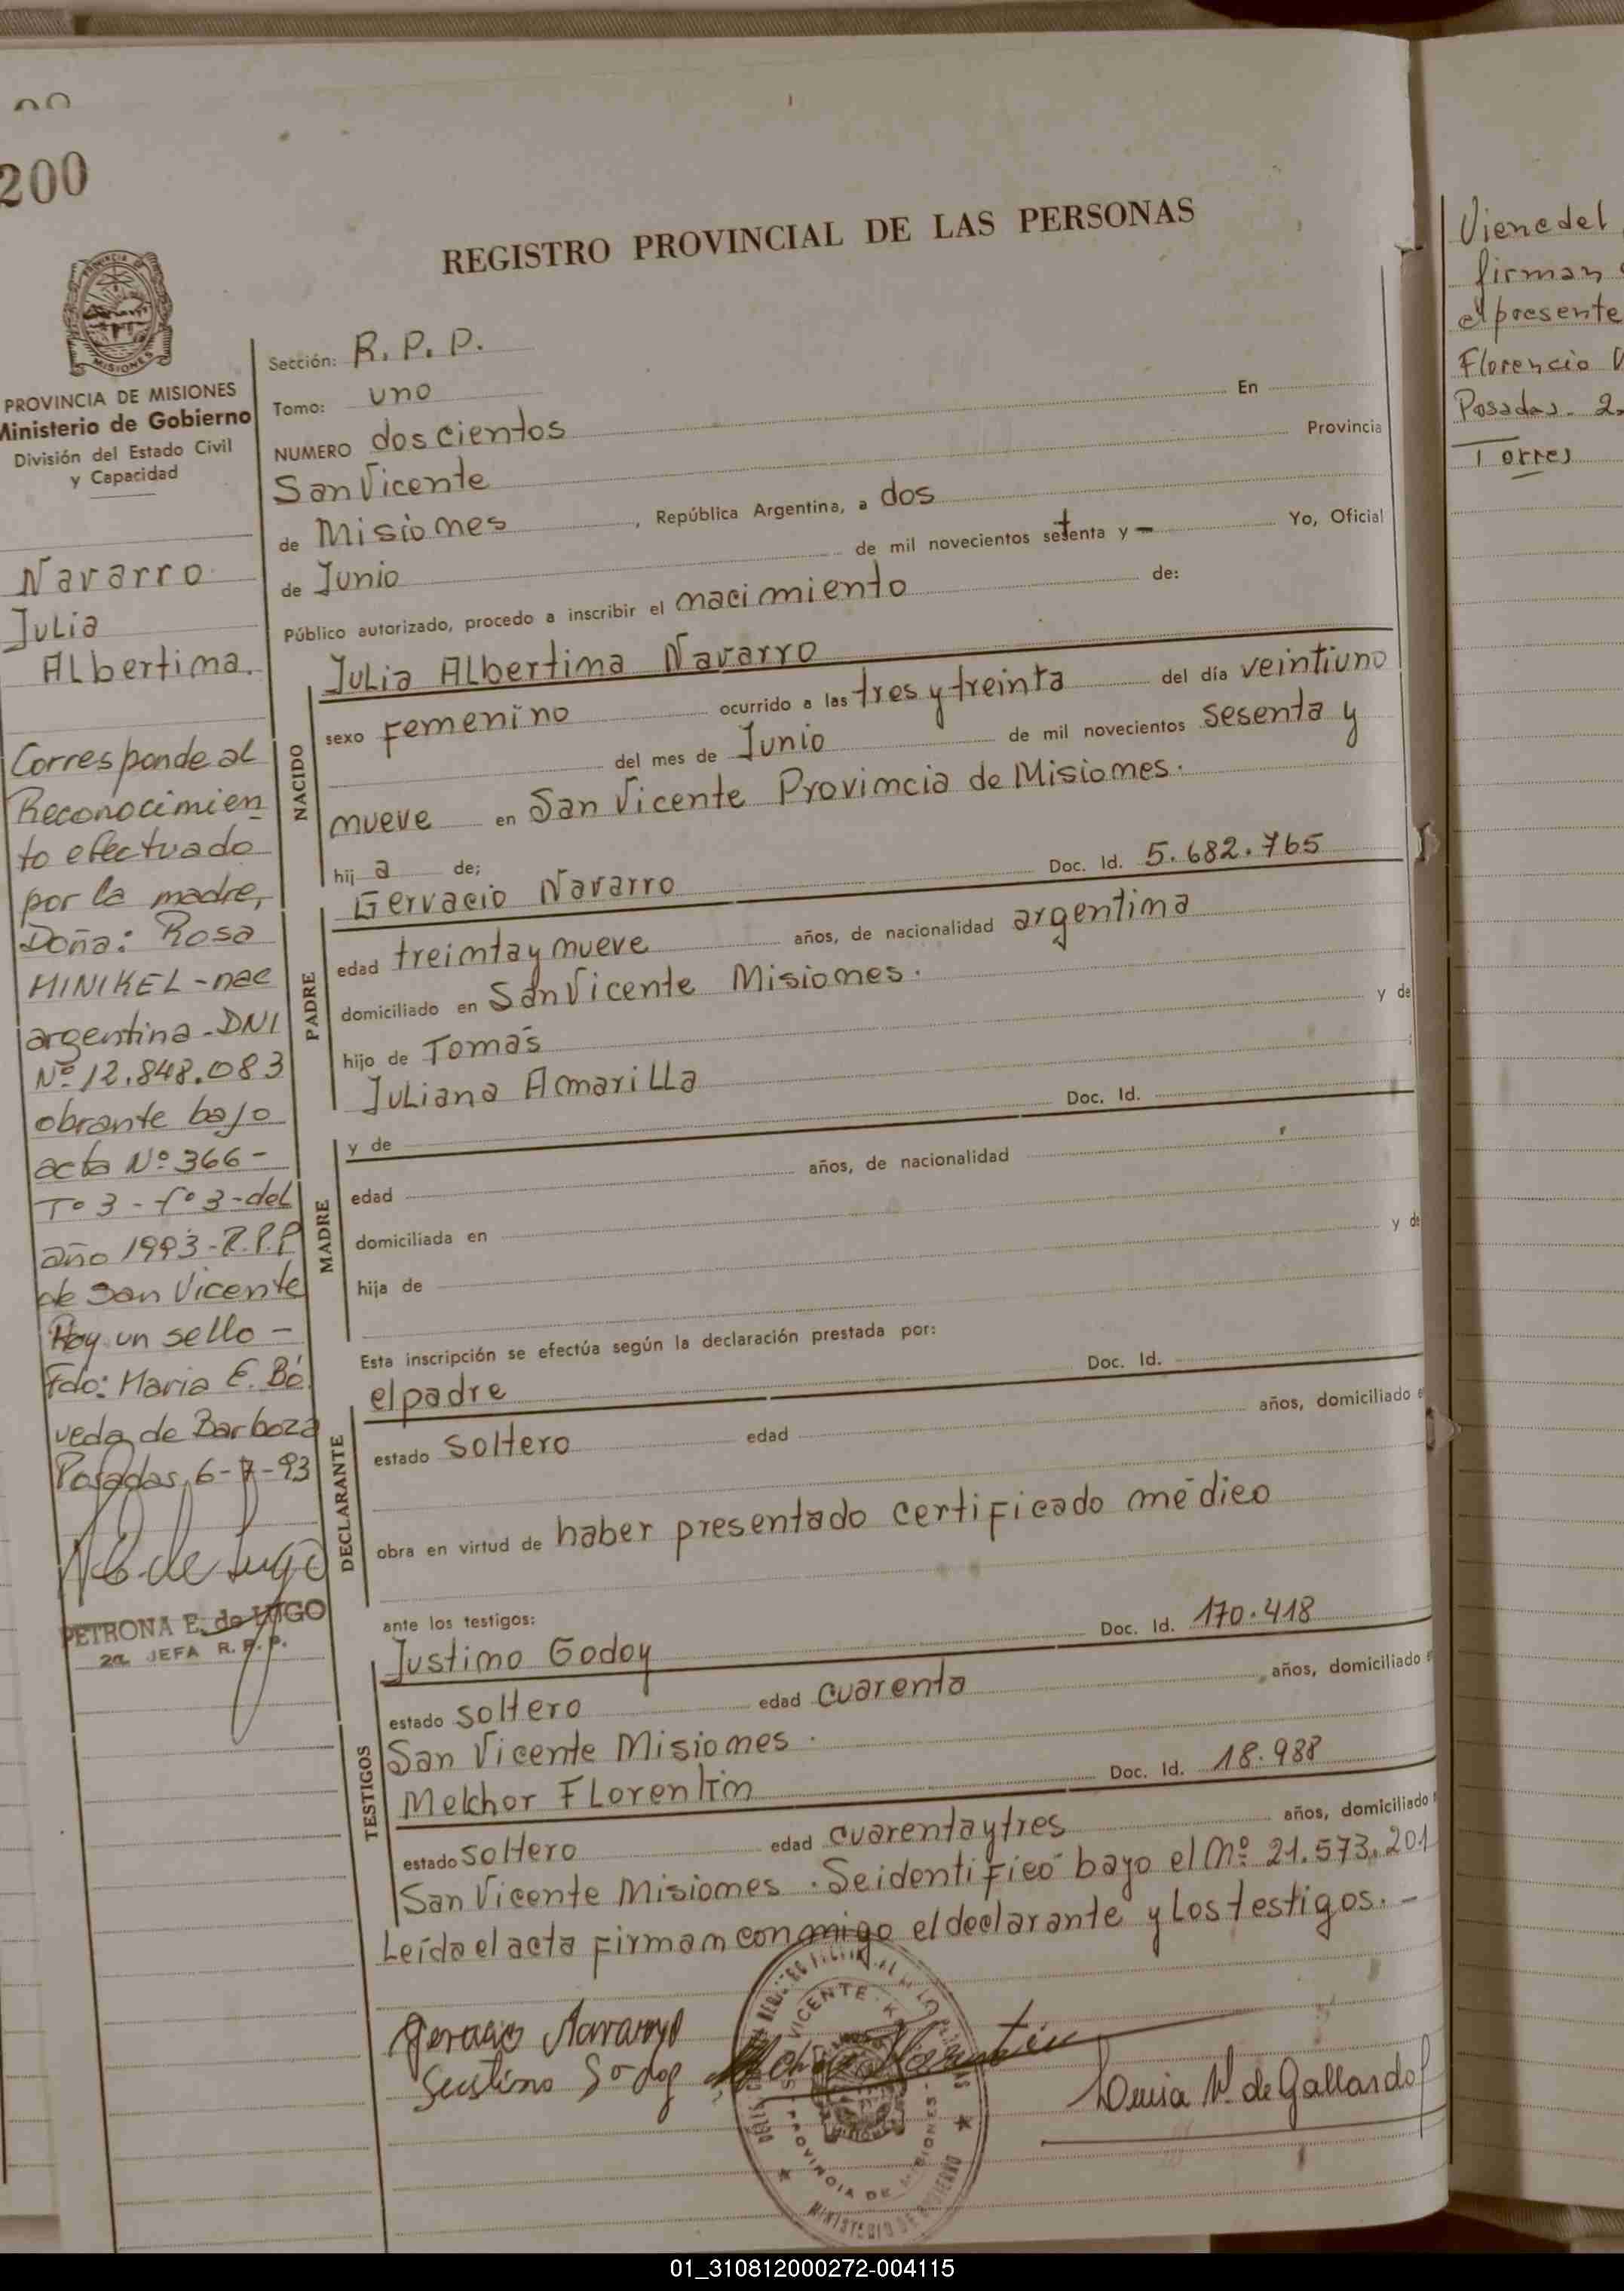 200
REGISTRO PROVINCIAL DE LAS PERSONAS
PROVINCIA DE MISIONES
Ministerio de Gobierno
División del Estado Civil
y Capacidad
Navarro
Julia
Albertina.
Corresponde al
Reconocimien
to efectuado
por la madre,
Doña: Rosa
MINIKEL - nac
argentina - DNI
Nº 12.848.083
obrante bajo
acta Nº 366 -
Tº 3 - fº 3 - del
año 1993 - R.P.P
de San Vicente
Hay un sello -
Fdo: Maria E. Bó
veda de Barboza
Posadas, 6-7-93
PETRONA E. de LUGO
2a JEFA R. P. P.
Sección: R. P. P.
Tomo: uno
NUMERO doscientos En
San Vicente Provincia
de Misiones, República Argentina, a dos
de Junio de mil novecientos setenta y - Yo, Oficial
Público autorizado, procedo a inscribir el nacimiento de:
Julia Albertina Navarro
NACIDO
sexo Femenino ocurrido a las tres y treinta del día veintiuno
del mes de Junio de mil novecientos sesenta y
nueve en San Vicente Provincia de Misiones.
hij a de;
Gervacio Navarro Doc. Id. 5.682.765
PADRE
edad treinta y nueve años, de nacionalidad argentina
domiciliado en San Vicente Misiones.
hijo de Tomás y de
Juliana Amarilla
y de Doc. Id.
MADRE
edad años, de nacionalidad
domiciliada en
hija de y de
Esta inscripción se efectúa según la declaración prestada por:
el padre Doc. Id.
DECLARANTE
estado soltero edad años, domiciliado
obra en virtud de haber presentado certificado médico
ante los testigos:
Justino Godoy Doc. Id. 170.418
TESTIGOS
estado soltero edad cuarenta años, domiciliado
San Vicente Misiones.
Melchor Florentin Doc. Id. 18.988
estado soltero edad cuarenta y tres años, domiciliado
San Vicente Misiones. Se identificó bajo el Nº 21.573.201
Leída el acta firman conmigo el declarante y los testigos. -
Gervacio Navarro
Justino Godoy
Florentin
Luisa V. de Gallardo
VICENTE
PROVINCIA DE MISIONES
MINISTERIO DE GOBIERNO
Viene del
firman
el presente
Florencio V
Posadas - 2
Torres
01_310812000272-004115